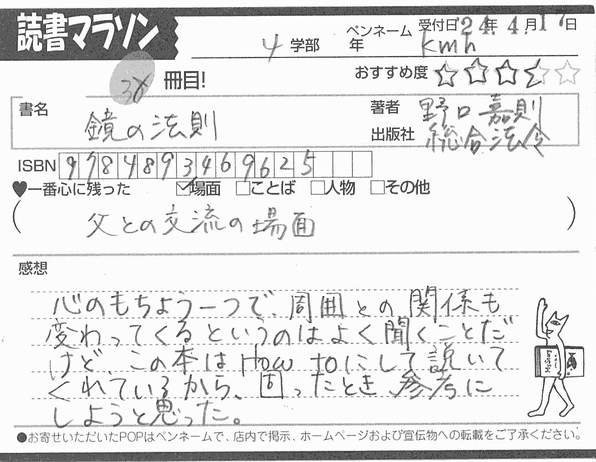 読書マラソン
ペンネーム 受付日24年4月17日
4 学部 年 kmh
38 冊目! おすすめ度 ☆☆☆☆☆
書名 鏡の法則 著者 野口嘉則
出版社 総合法令
ISBN 9784893469625
♥一番心に残った ☑場面 □ことば □人物 □その他
(父との交流の場面)
感想
心のもちよう一つで、周囲との関係も
変わってくるというのはよく聞くことだ
けど、この本はHow toにして説いて
くれているから、困ったとき参考に
しようと思った。
●お寄せいただいたPOPはペンネームで、店内で掲示、ホームページおよび宣伝物への転載をご了承ください。